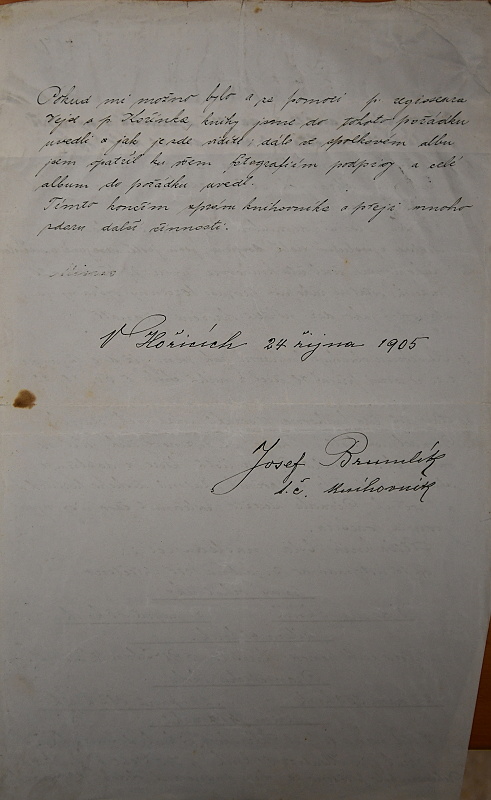 Pokud mi možno bylo a za pomoci p. regisseura
Vejd a p. Kořínka, knihy jsme do tohoto pořádku
uvedli a jak jezde viděti, dálo ve spolkovém albu
jsem opatřil ku všem fotografiím podpisy a celé
album do pořádku uvedl.
Tímto končím zprávu knihovníka a přeji mnoho
zdaru další činnosti.
V Hořicích 24 října 1905
Josef Brumlík
t.č. knihovník